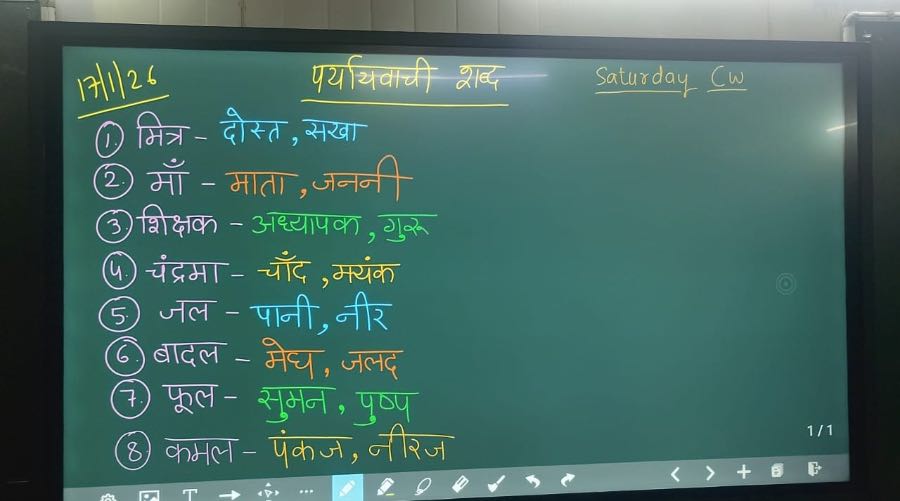 17/1/26 पर्यायवाची शब्द Saturday Cw
1. मित्र - दोस्त, सखा
2. माँ - माता, जननी
3. शिक्षक - अध्यापक, गुरू
4. चंद्रमा - चाँद, मयंक
5. जल - पानी, नीर
6. बादल - मेघ, जलद
7. फूल - सुमन, पुष्प
8. कमल - पंकज, नीरज
1/1